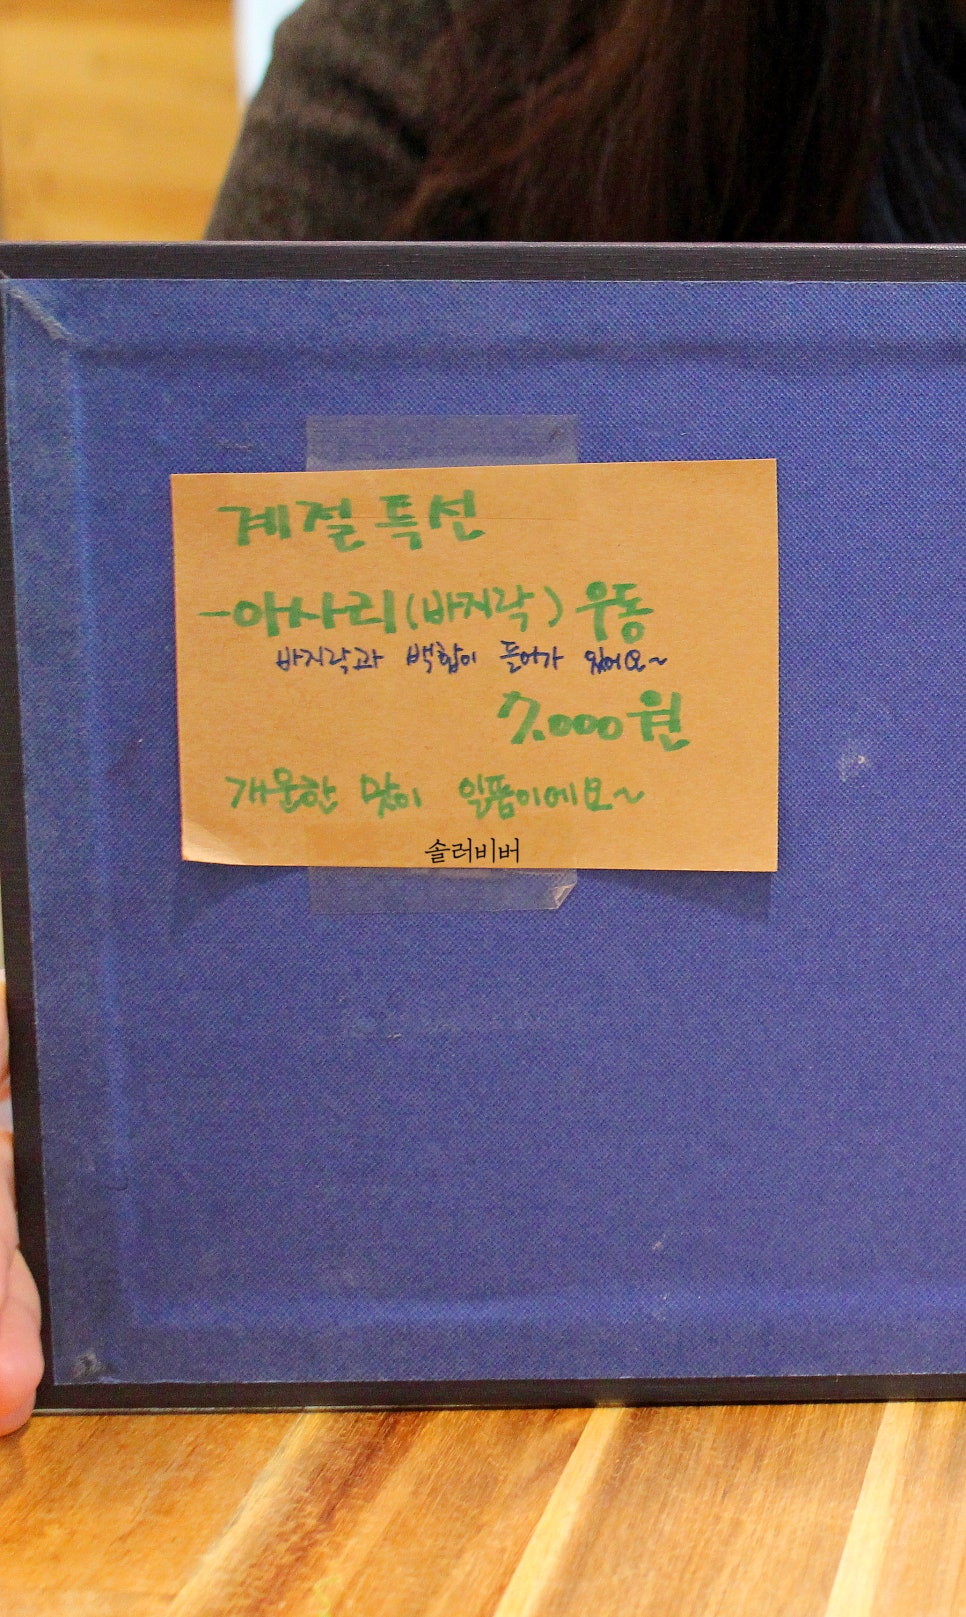 계절특선
-아사리(바지락) 우동
바지락과 백합이 들어가 있어요~
7.000원
개운한 맛이 일품이에요~
솔러비버